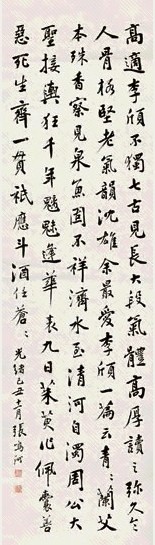 高適李頎不獨七古見長大段氣體高厚讀之弥久令
人骨格堅老氣韻沈雄余最愛李頎一篇云青〻蘭艾
本殊香察見泉魚固不祥濟水至清河自濁周公大
聖接輿狂千年魑魅逢華表九日茱萸作佩囊善
惡死生齊一貫祇應斗酒任蒼〻 光緒己丑 月張鳴珂